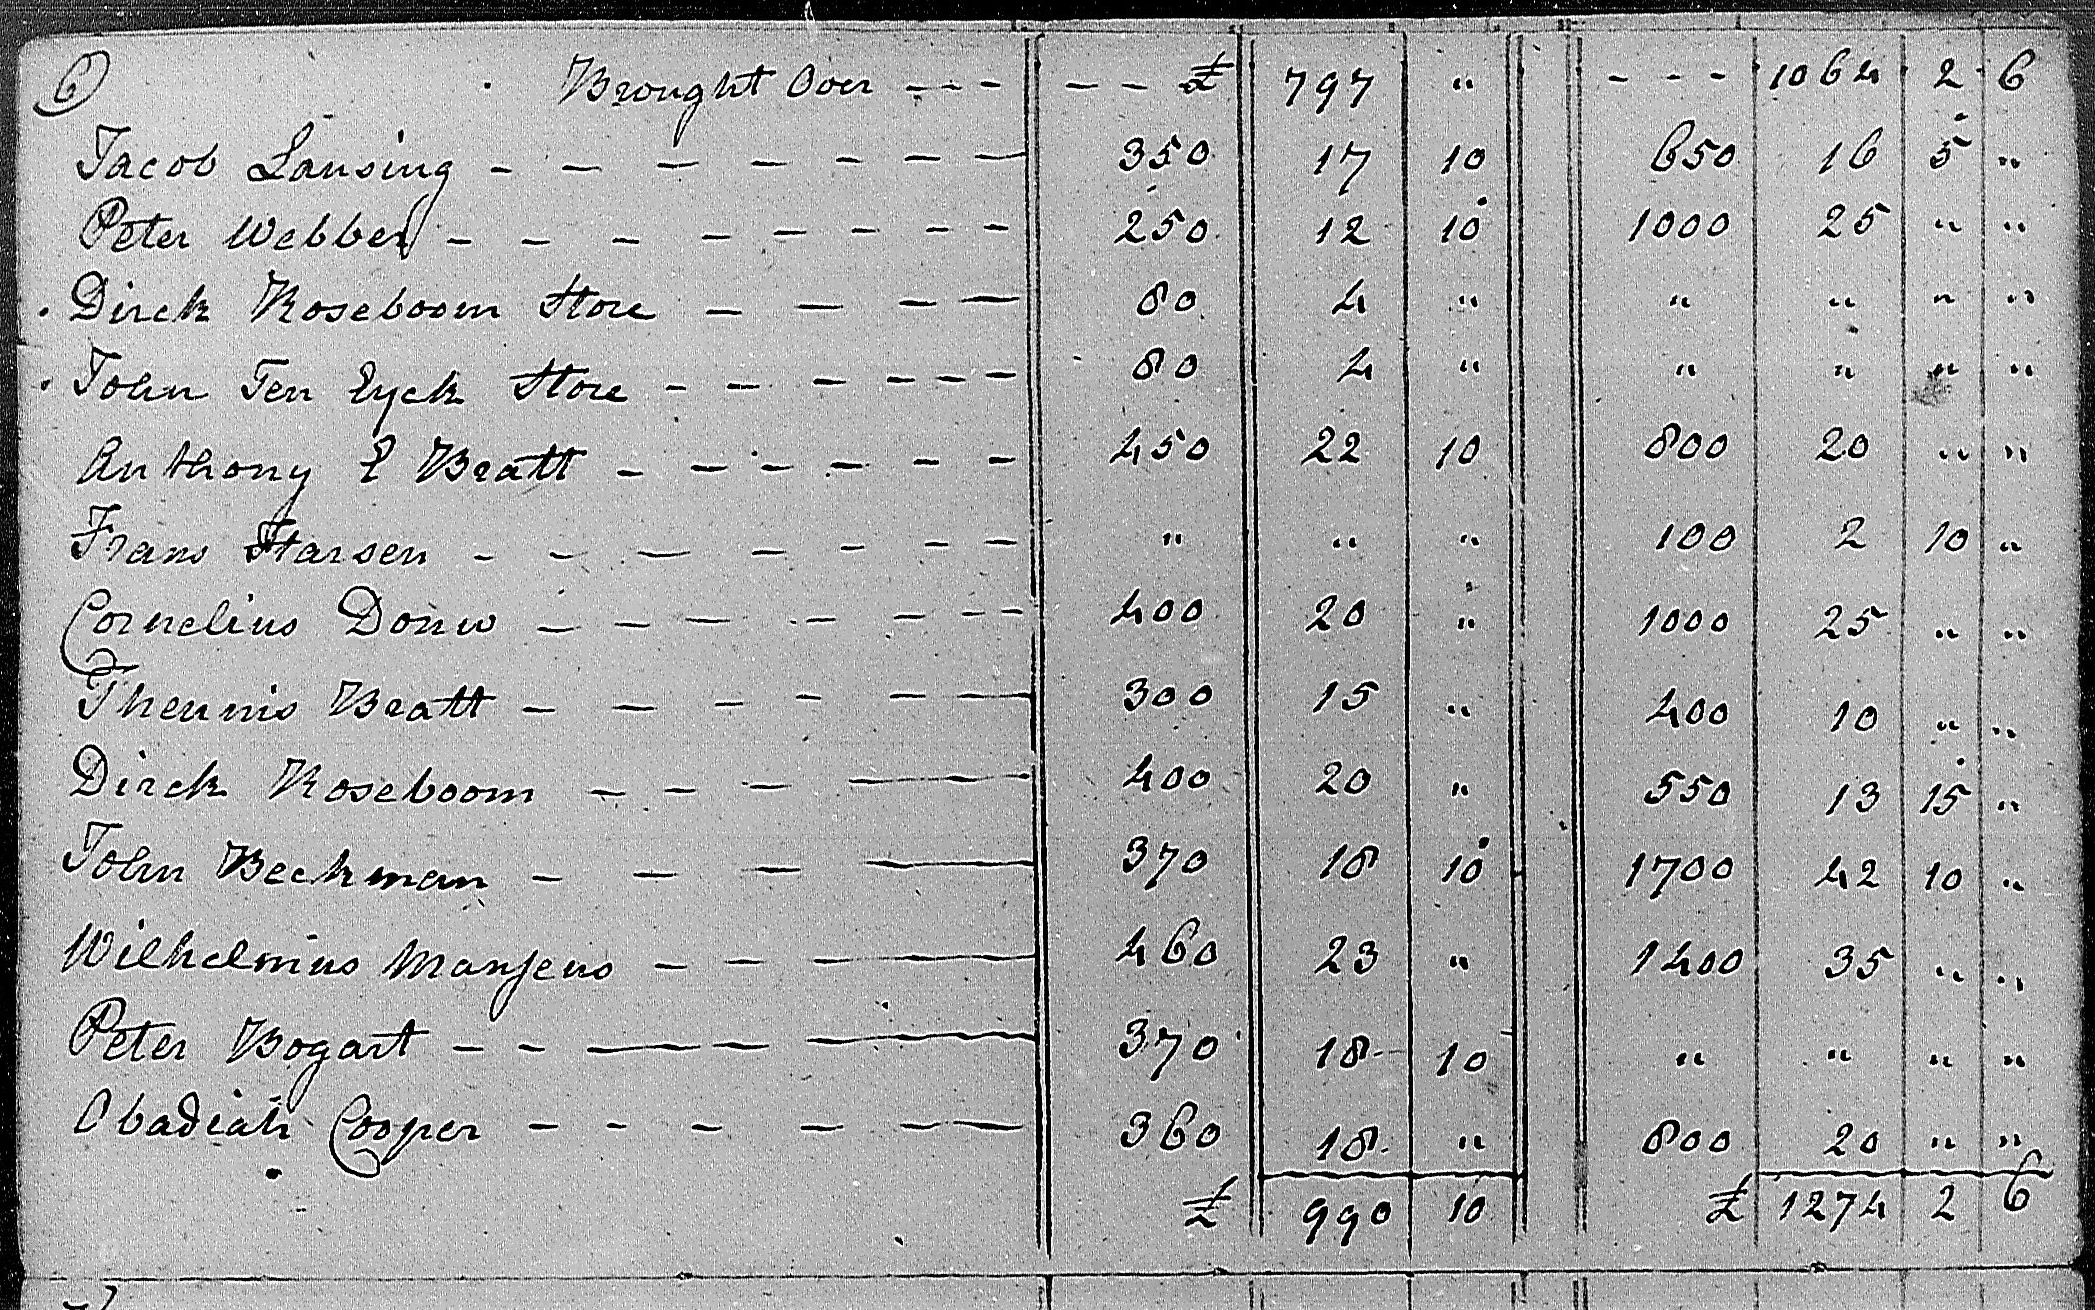 6 Brought Over - - - - - £ 797 " - - - 1064 2 6
Jacob Lansing - - - - - - - 350 17 10 650 16 5 "
Peter Webber - - - - - - - - 250 12 10 1000 25 " "
Dirck Roseboom Store - - - - 80 4 " " " " "
John Ten Eyck Store - - - - - - 80 4 " " " " "
Anthony E Bratt - - - - - - 450 22 10 800 20 " "
Frans Harsen - - - - - - - " " " 100 2 10 "
Cornelius Douw - - - - - - - 400 20 " 1000 25 " "
Theunis Bratt - - - - - - 300 15 " 400 10 " "
Dirck Roseboom - - - - - 400 20 " 550 13 15 "
John Beekman - - - - 370 18 10 1700 42 10 "
Wilhelmus Mansens - - - - 460 23 " 1400 35 " "
Peter Bogart - - - - - 370 18 10 " " " "
Obadiah Cooper - - - - - - 360 18 " 800 20 " "
£ 990 10 £ 1274 2 6